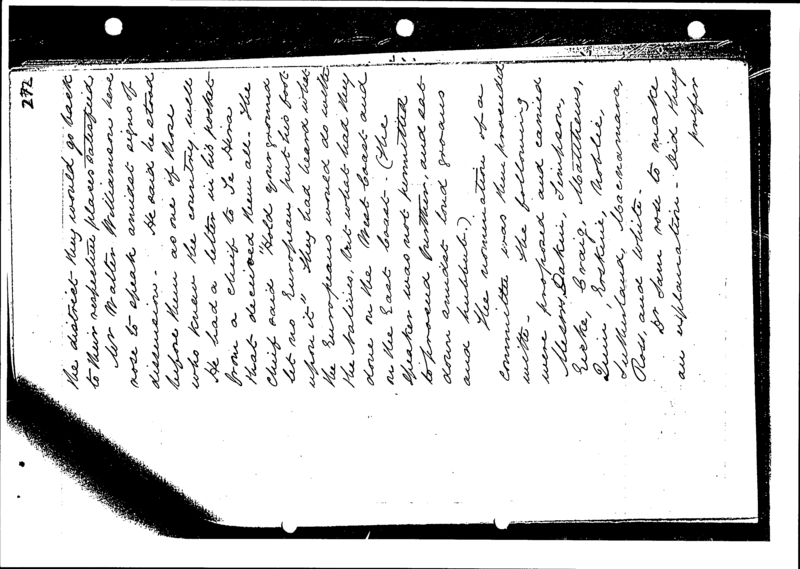 272
the district they would go back
to their respective places satisfied
Mr Walter Williamson here
rose to speak amidst signs of
dissension. He said he stood
before them as one of those
who knew the country well
He had a letter in his pocket
from a chief to Te Hira
that deceived them all. The
chief said "Hold your ground
let no European put his foot
upon it" They had heard what
the Europeans would do with
the Natives, but what had they
done on the West Coast and
on the East Coast. (The
speaker was not permitted
to proceed further, and sat
down amidst loud groans
and hubbub.)
The nomination of a
committee was then proceeded
with. The following
were proposed and carried
Messrs Dakin, Simpson,
Craig, Matthews,
Quin, Erskine,
Sutherland, Macnamara,
Rod, and White.
Dr Sam rose to make
an explanation. Did they
prefer